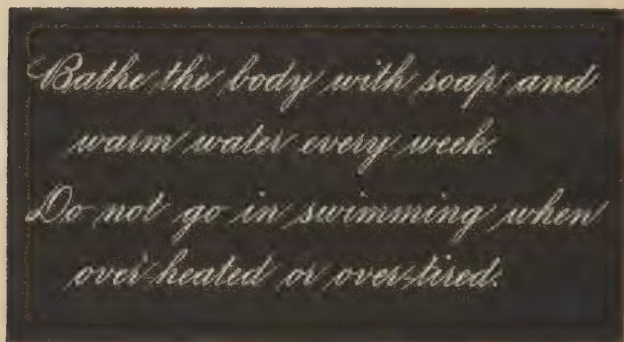 Bathe the body with soap and
warm water every week.
Do not go in swimming when
over-heated or over-tired.